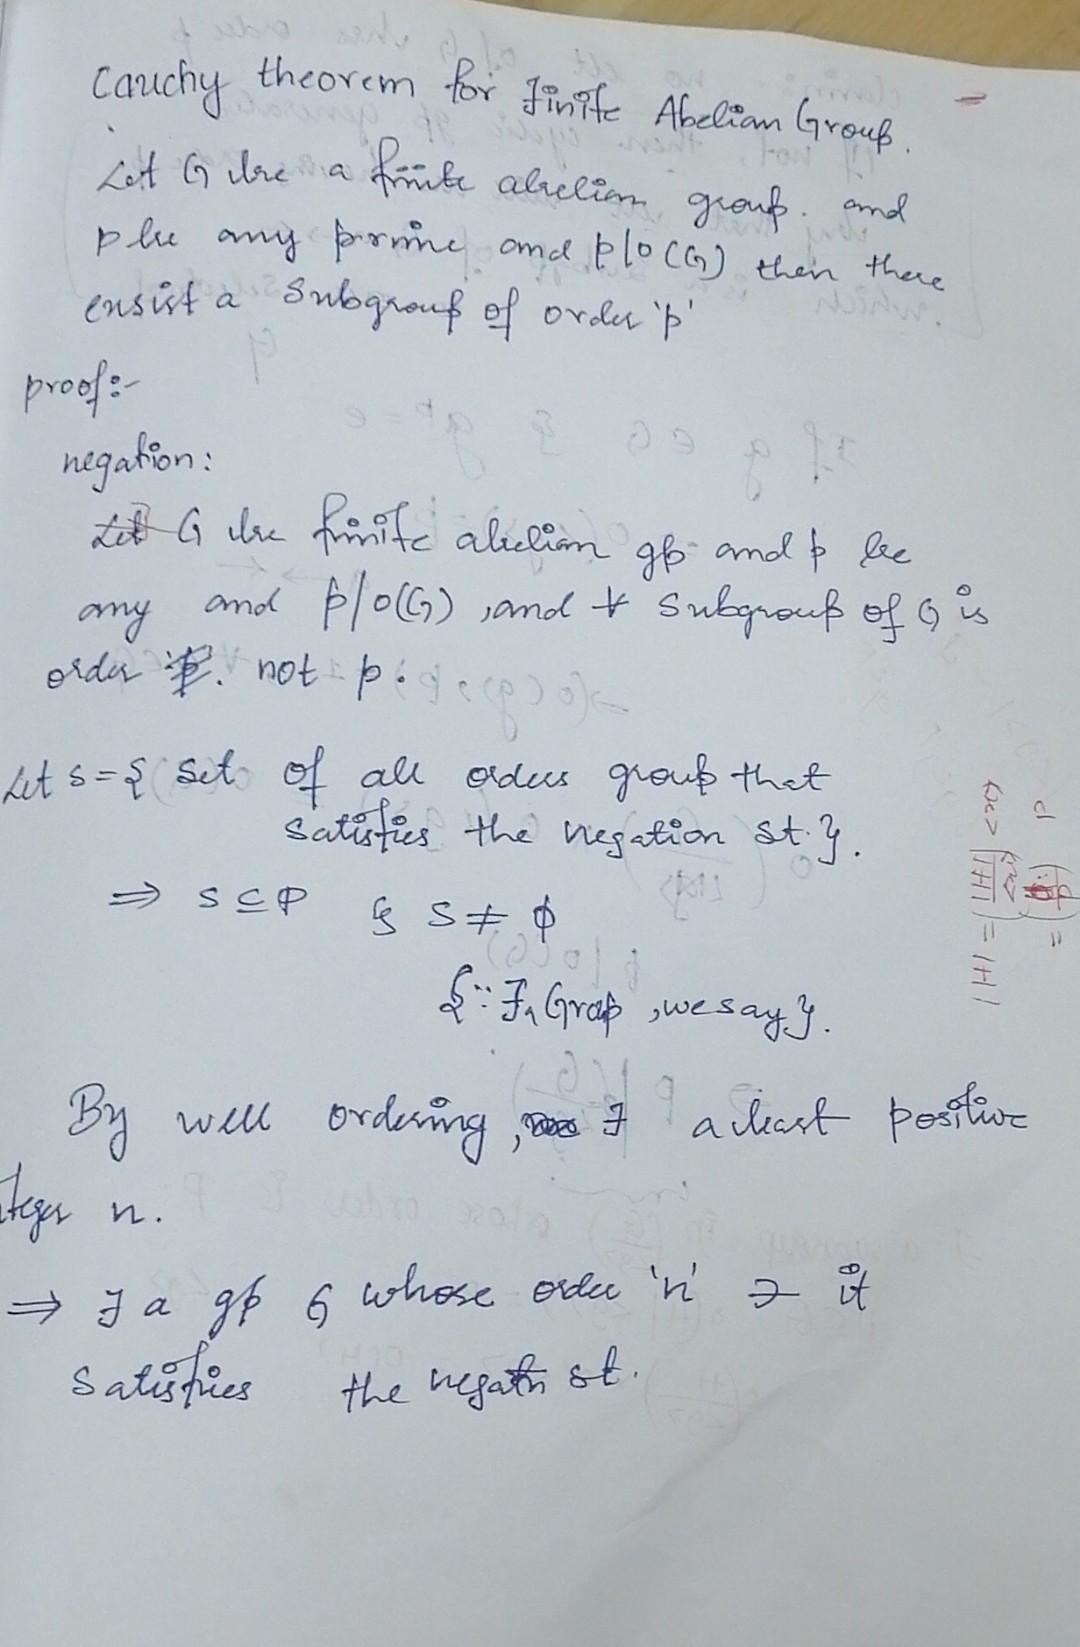 Cauchy theorem for Finite Abelian Group.
Let G be a finite abelian group. and
p be any prime and p|o(G) then there
ensist a subgroup of order 'p'
proof:-
negation:
Let G be finite abelian gp and p be
any and p|o(G), and ∀ subgroup of G is
order not p.
Let S = { set of all orders group that
satisfies the negation st. }.
⇒ S ⊆ P & S ≠ ϕ
{ ∵ ∃ a Group, we say }.
By well ordering, ∃ a least positive
nteger n.
⇒ ∃ a gp G whose order 'n' ∋ it
satisfies the negatn st.